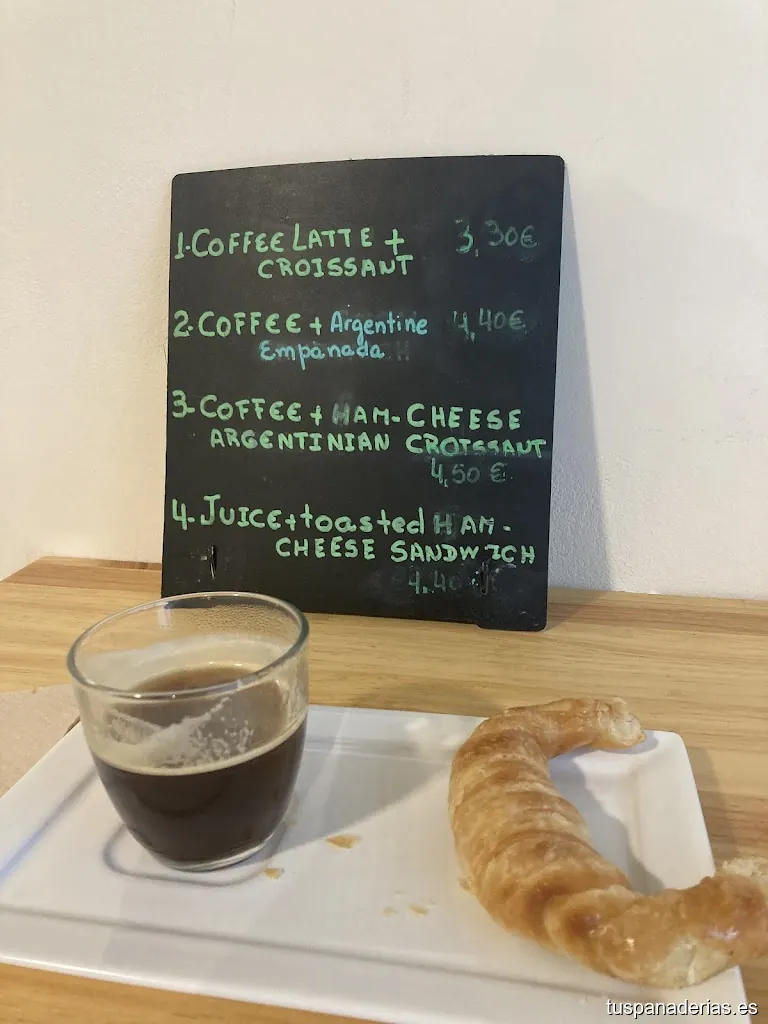 1-COFFEE LATTE + 3,30€
CROISSANT
2-COFFEE + Argentine 4,40€
Empanada
3-COFFEE + HAM-CHEESE
ARGENTINIAN CROISSANT
4,50 €
4-JUICE+toasted HAM-
CHEESE SANDWICH
4,40 €
tuspanaderias.es